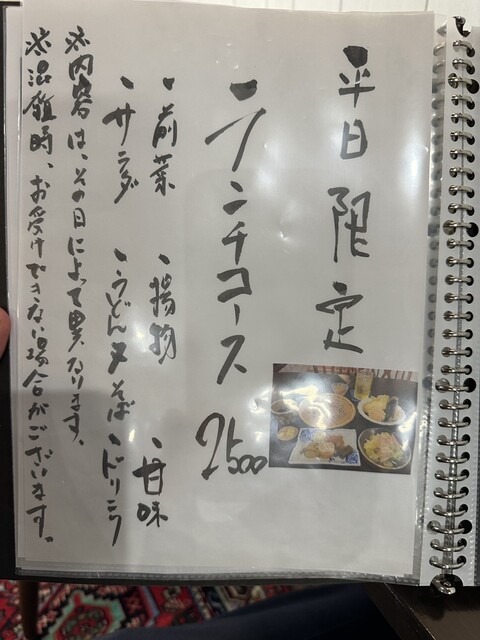 平日限定
・ランチコース 2500
・前菜 ・揚物 ・甘味
・サラダ ・うどん又そば ・ドリンク
※内容は、その日によって異なります。
※混雑時、お受けできない場合がございます。